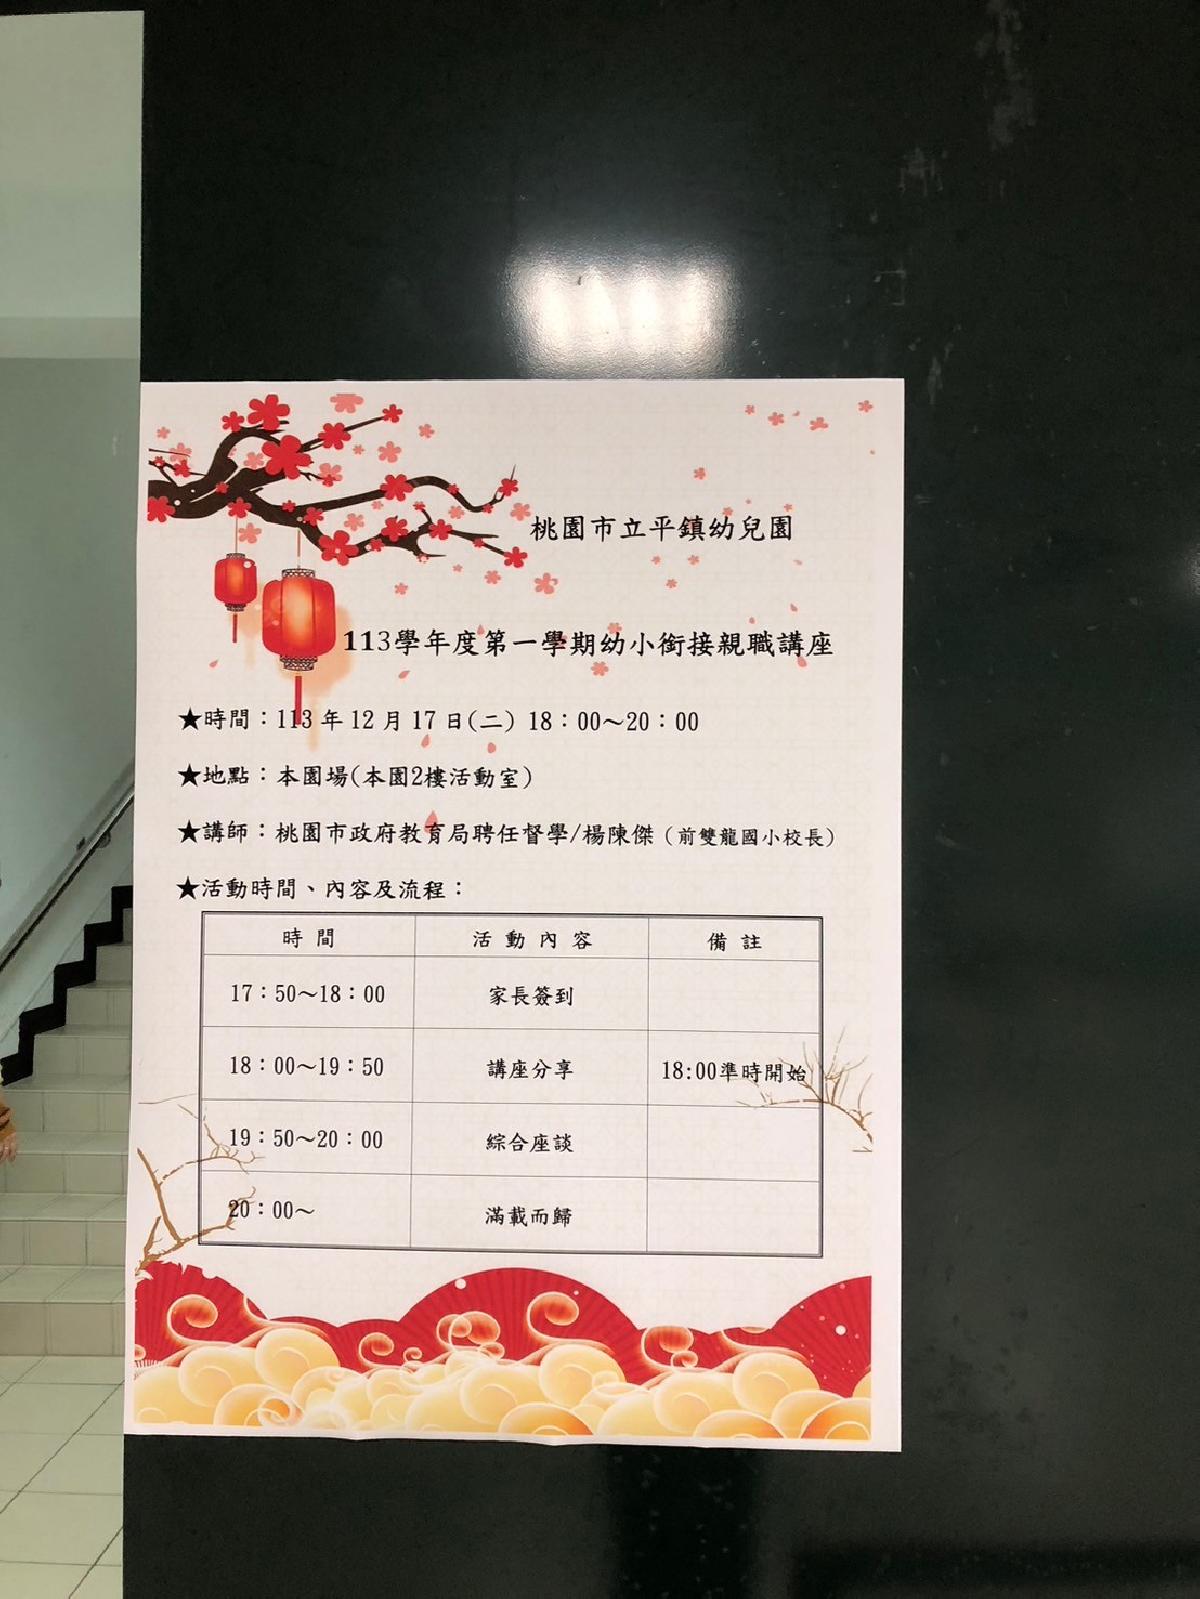 桃園市立平鎮幼兒園
113學年度第一學期幼小銜接親職講座
★時間：113 年 12 月 17 日(二) 18：00～20：00
★地點：本園場(本園2樓活動室)
★講師：桃園市政府教育局聘任督學/楊陳傑（前雙龍國小校長）
★活動時間、內容及流程：
時 間 活 動 內 容 備 註
17：50～18：00 家長簽到
18：00～19：50 講座分享 18:00準時開始
19：50～20：00 綜合座談
20：00～ 滿載而歸